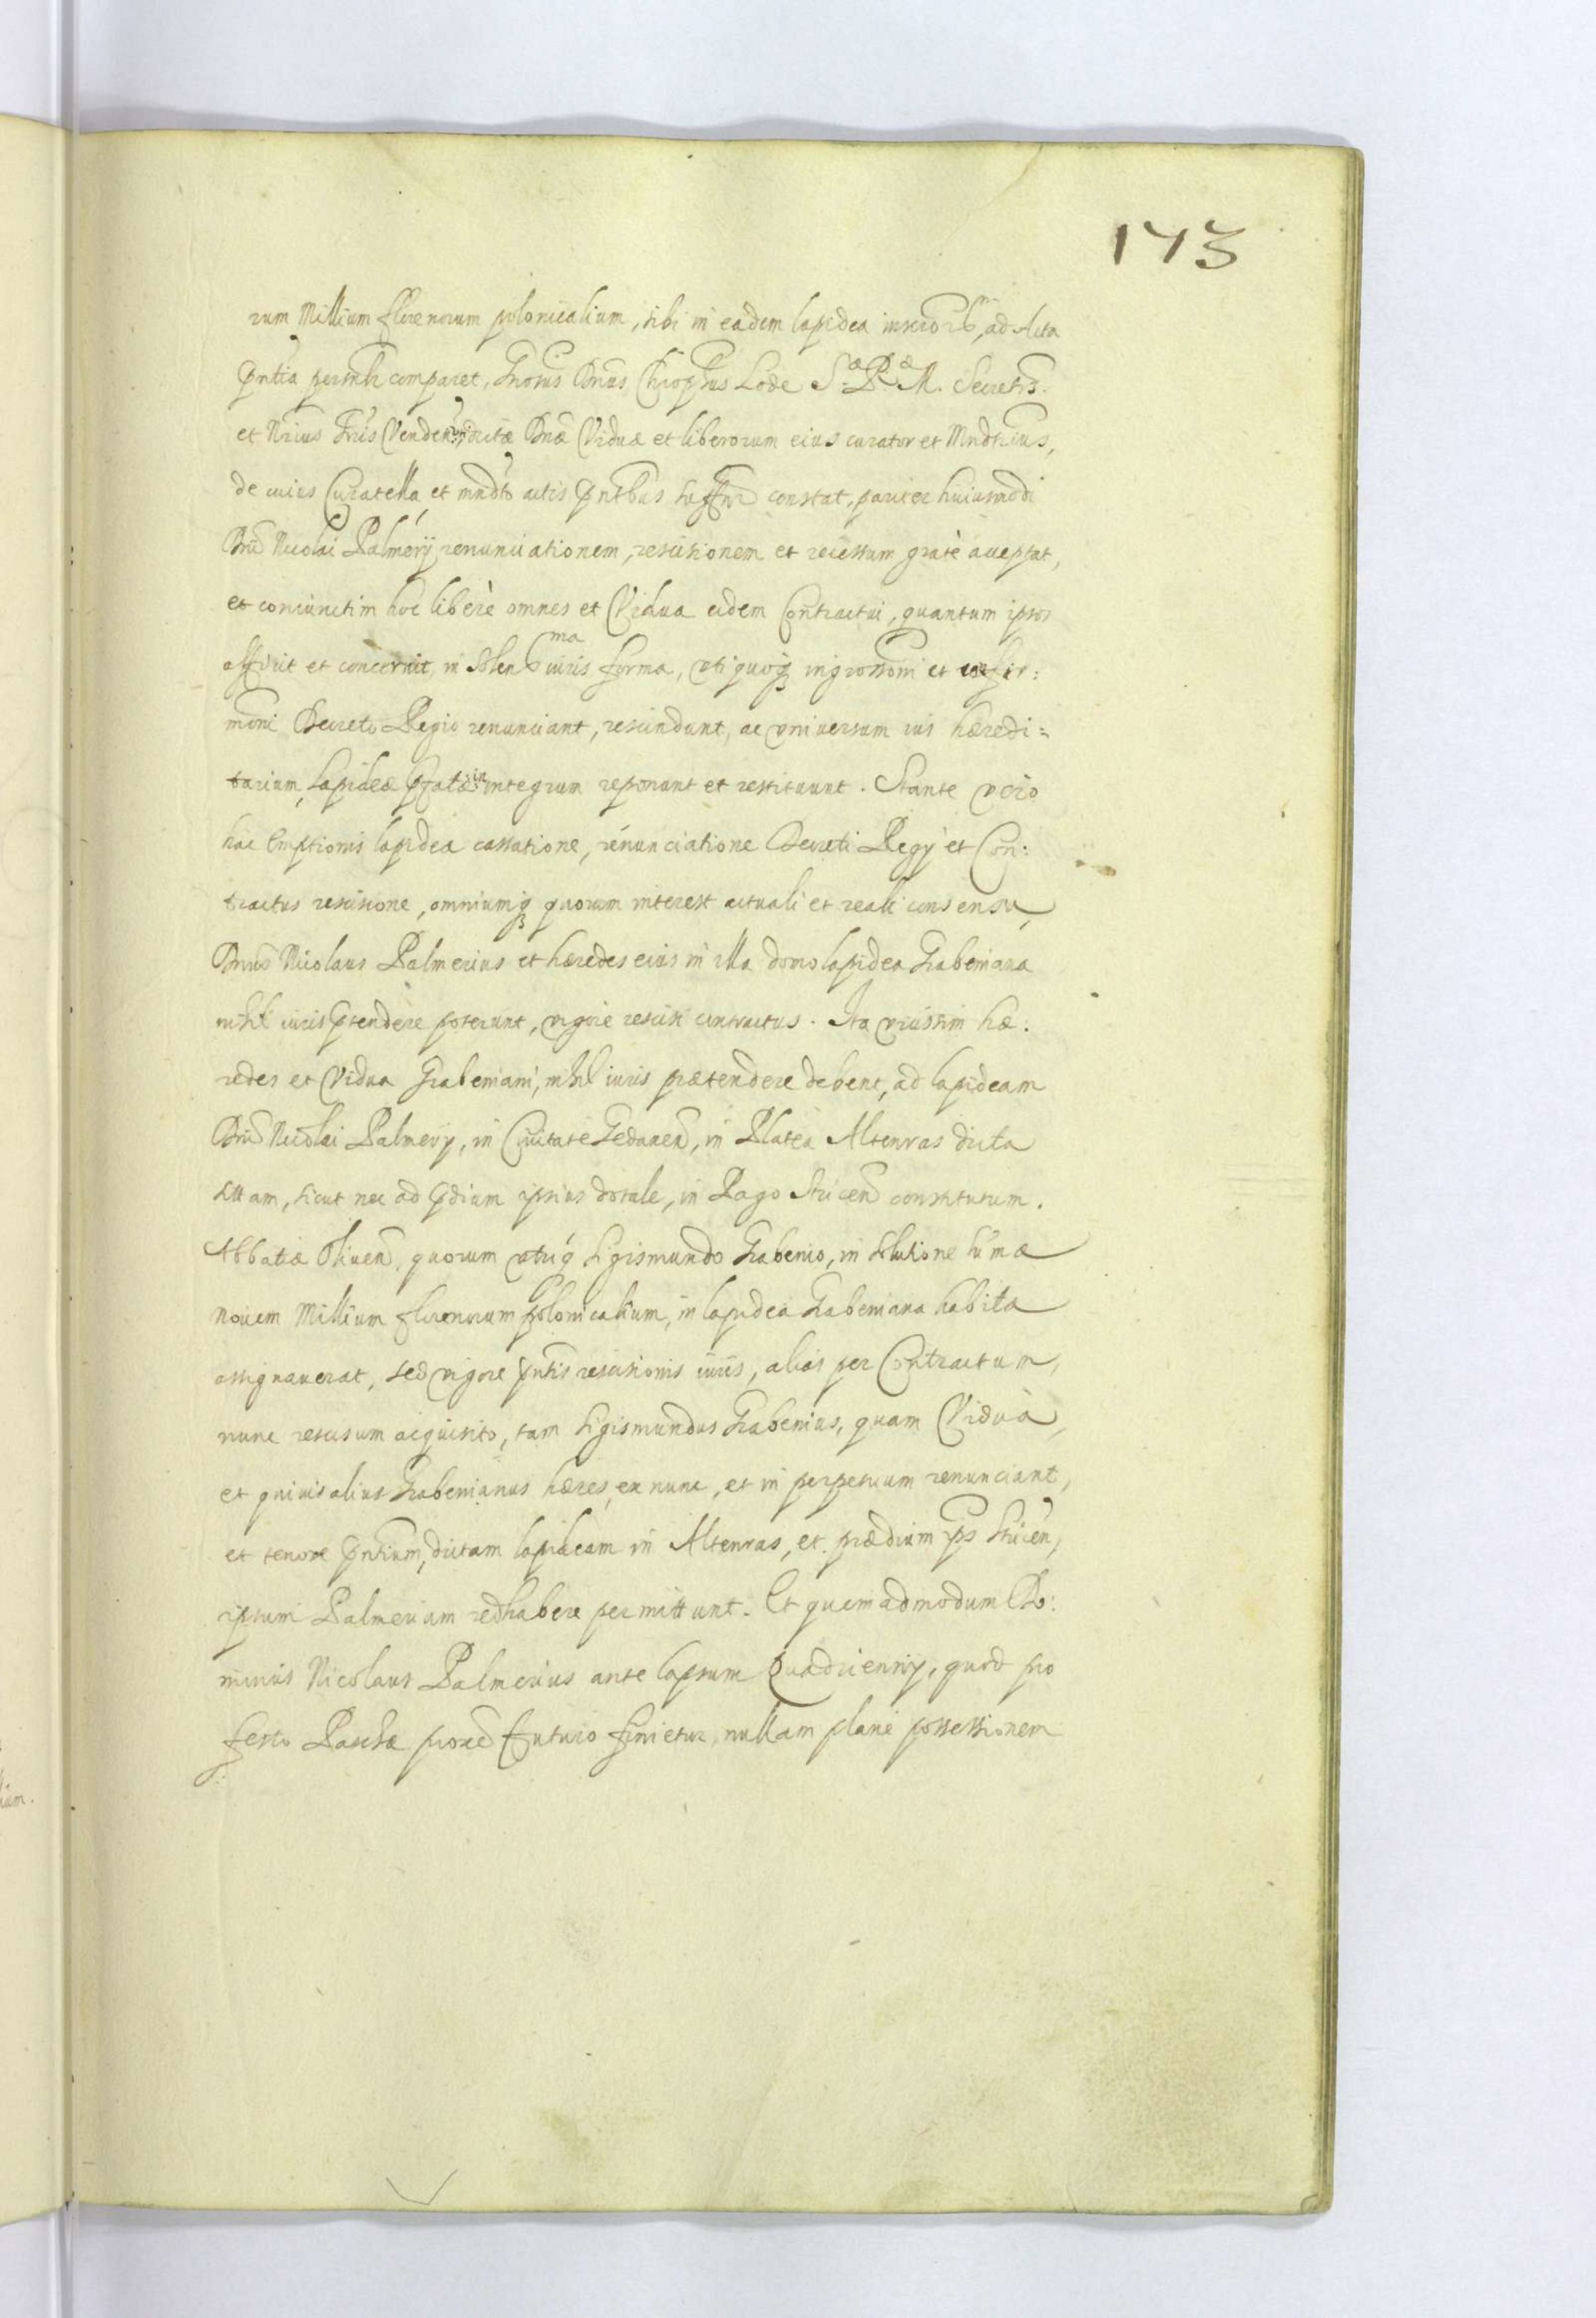 173
rum Millium florenorum polonicalium, sibi in eadem lapidea inscriptorũ, ad Acta
pñtia persnlr comparet, Gnosus Dnus Chrophus Lode S:æ R:æ M. Secretrs.
et Nrius Tris Venden, dictæ Dnæ Viduæ et liberorum eius curator et Mndtrius,
de cuius Curatella et mndto actis pntbus suffnr constat, pariter huiusmodi
Dni Nicolai Palmerij renunciationem, rescisionem et recessum gratè acceptat,
et coniunctim hoc liberè omnes et Vidua eidem Contractui, quantum ipsos
afficit et concernit, in solenma iuris forma, uti quoq ingrossõni et confir:
mõni Decreto Regio renunciant, rescindunt, ac universum ius hæredi=
tarium, lapideæ pfatæ in integrum reponunt et restituunt. Stante vero
hac emptionis lapideæ cassatione, renunciatione Decreti Regij et Con:
tractus rescisione, omniumq quorum interest actuali et reali consensu,
Dnus Nicolaus Palmerius et hæredes eius in illa domo lapidea Grabeniana
nihil iuris ptendere poterunt, vigore rescisi contractus. Ita vicissim hæ:
redes et Vidua Grabeniani, nihil iuris prætendere debent, ad lapideam
Dni Nicolai Palmerij, in Civitate Gedanen, in Platea Altenras dicta
sitam, sicut nec ad pdium ipsius dotale, in Pago Stricen constitutum.
Abbatiæ Oliuen, quorum utrũq Sigismundo Grabenio, in solutione sũmæ
nouem Millium florenorum polonicalium, in lapidea Grabeniana habita
assignauerat, sed vigore pntis rescisionis iuris, alias per Contractum,
nunc rescisum acquisito, tam Sigismundus Grabenius, quam Vidua,
et quiuis alius Grabenianus hæres, ex nunc, et in perpetuum renunciant,
et tenore pntium, dictam lapideam in Altenras, et prædium in Stricen,
ipsum Palmerium redhabere permittunt. Et quemadmodum Do:
minus Nicolaus Palmerius ante lapsum Quadriennij, quod pro
festo Paschæ proxe futuro finietur, nullam plane possessionem